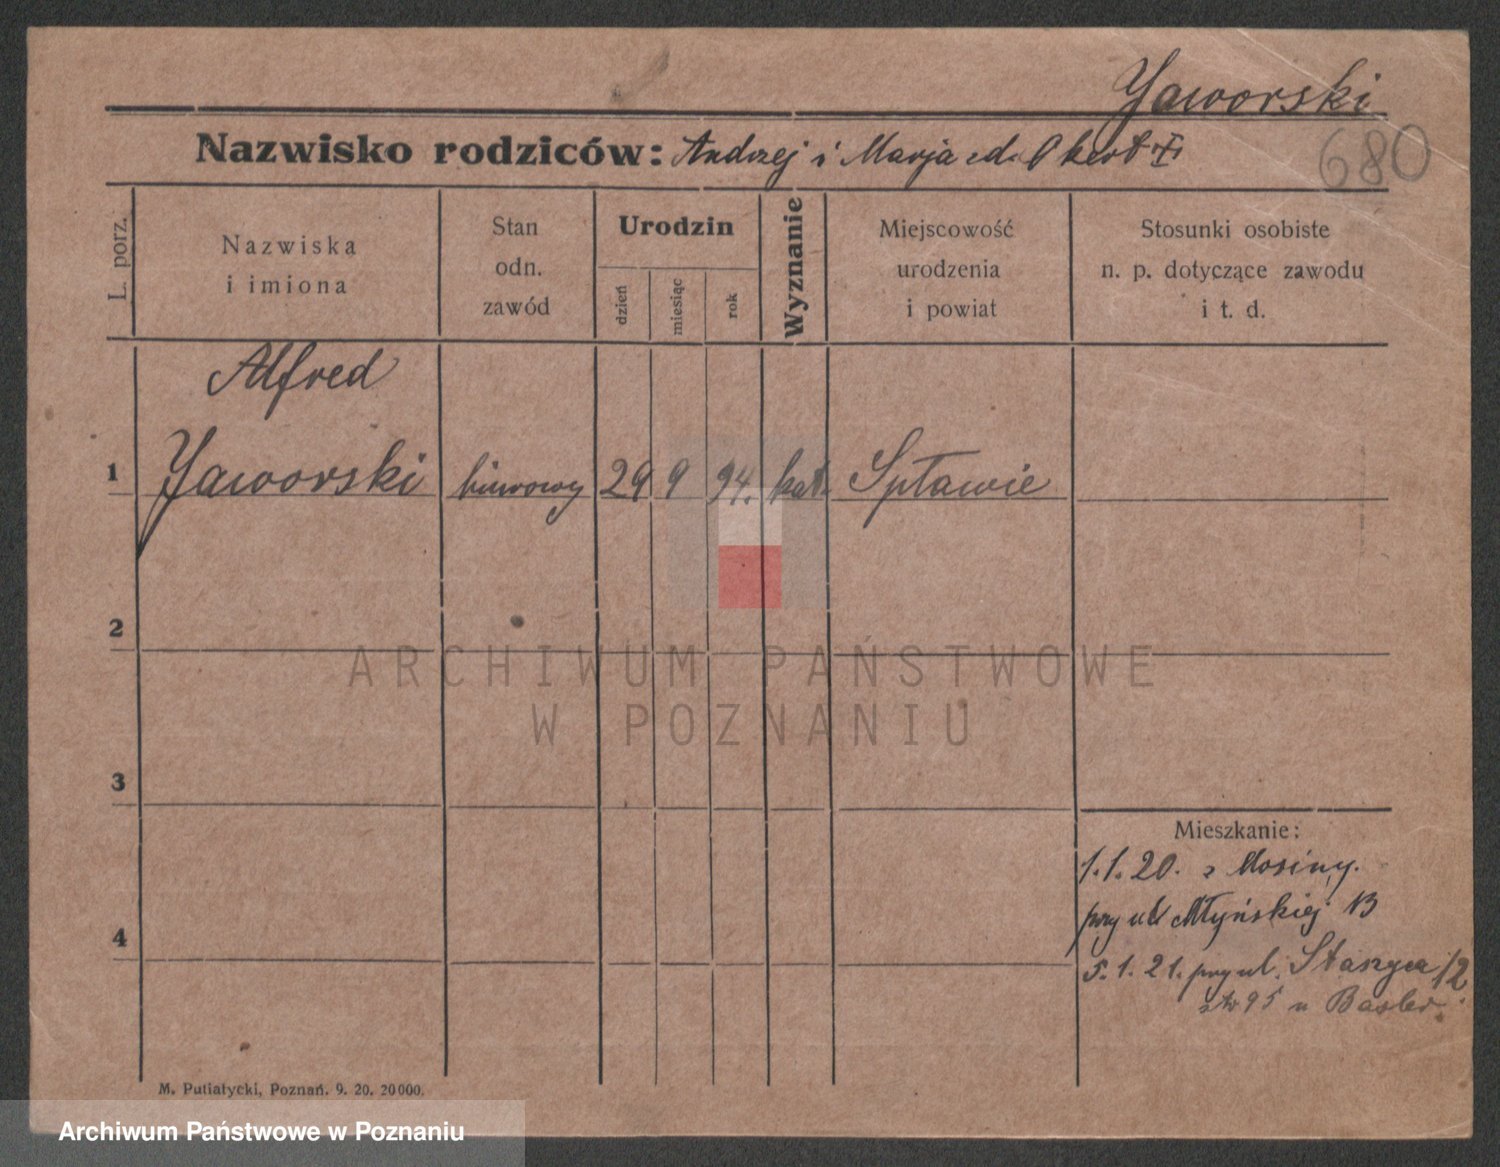 Jaworski
680
Nazwisko rodziców: Andrzej i Marja
L. porz.
Nazwiska
i imiona
Stan
odn.
zawód
Urodzin
dzień
miesiąc
rok
Wyznanie
Miejscowość
urodzenia
i powiat
Stosunki osobiste
n. p. dotyczące zawodu
i t. d.
Alfred
1 Jaworski biurowy 29 9 94. kat. Spławie
2
ARCHIWUM PAŃSTWOWE
W POZNANIU
3
Mieszkanie:
1.1.20. z Mosiny.
przy ul Młyńskiej 13
4
5.1.21. przy ul. Staszyca 12
95 u Basler.
M. Putiatycki, Poznań. 9. 20. 20000.
Archiwum Państwowe w Poznaniu